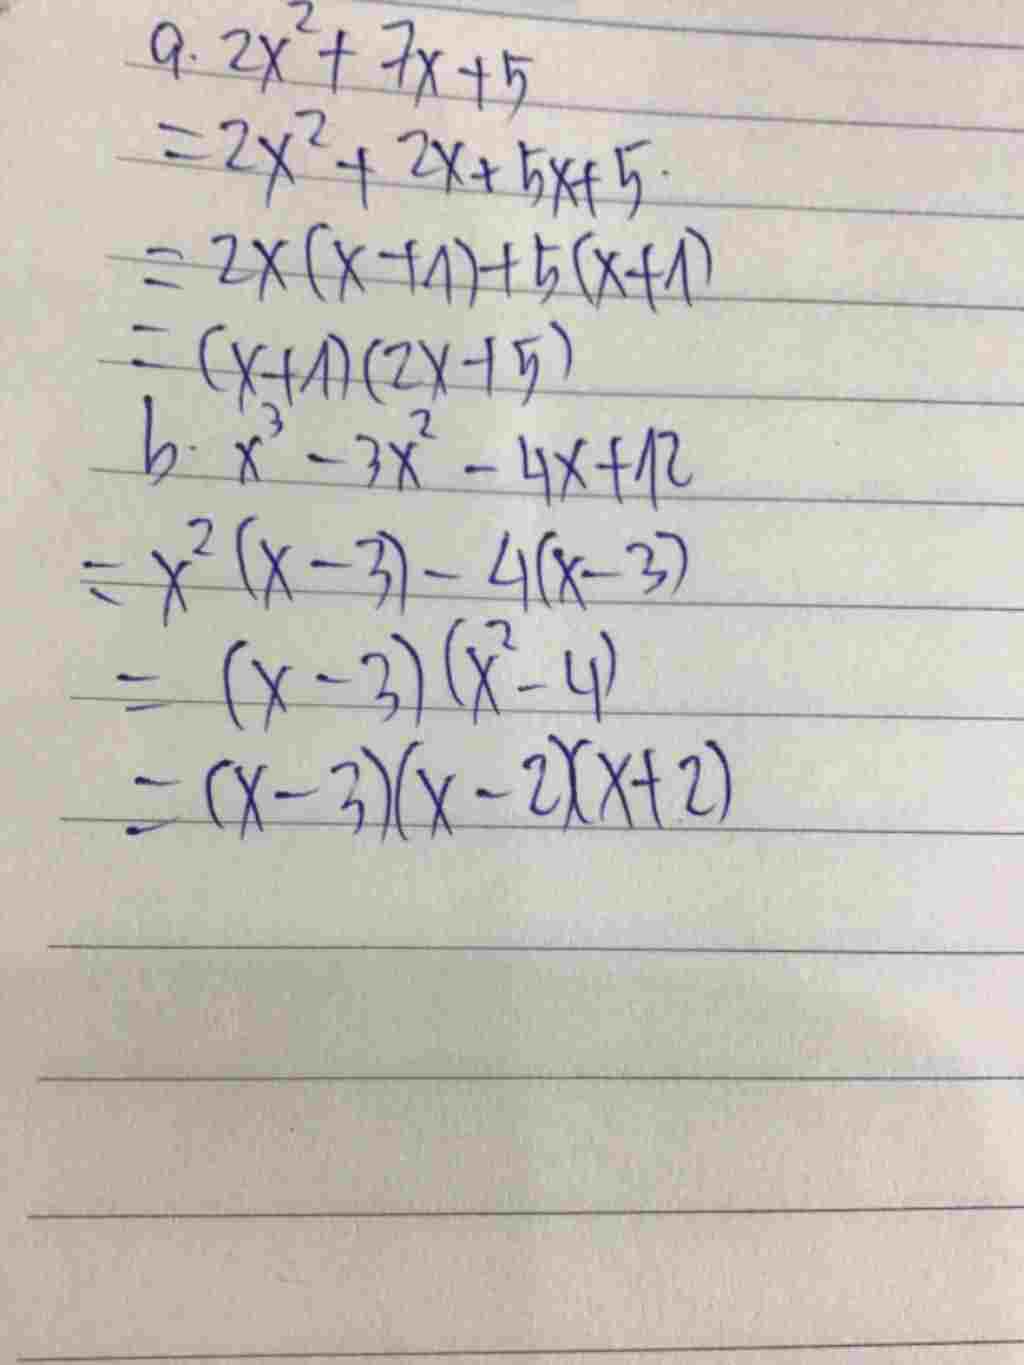 a. 2x² + 7x + 5
= 2x² + 2x + 5x + 5.
= 2x(x + 1) + 5(x + 1)
= (x + 1)(2x + 5)
b. x³ - 3x² - 4x + 12
= x²(x - 3) - 4(x - 3)
= (x - 3)(x² - 4)
= (x - 3)(x - 2)(x + 2)